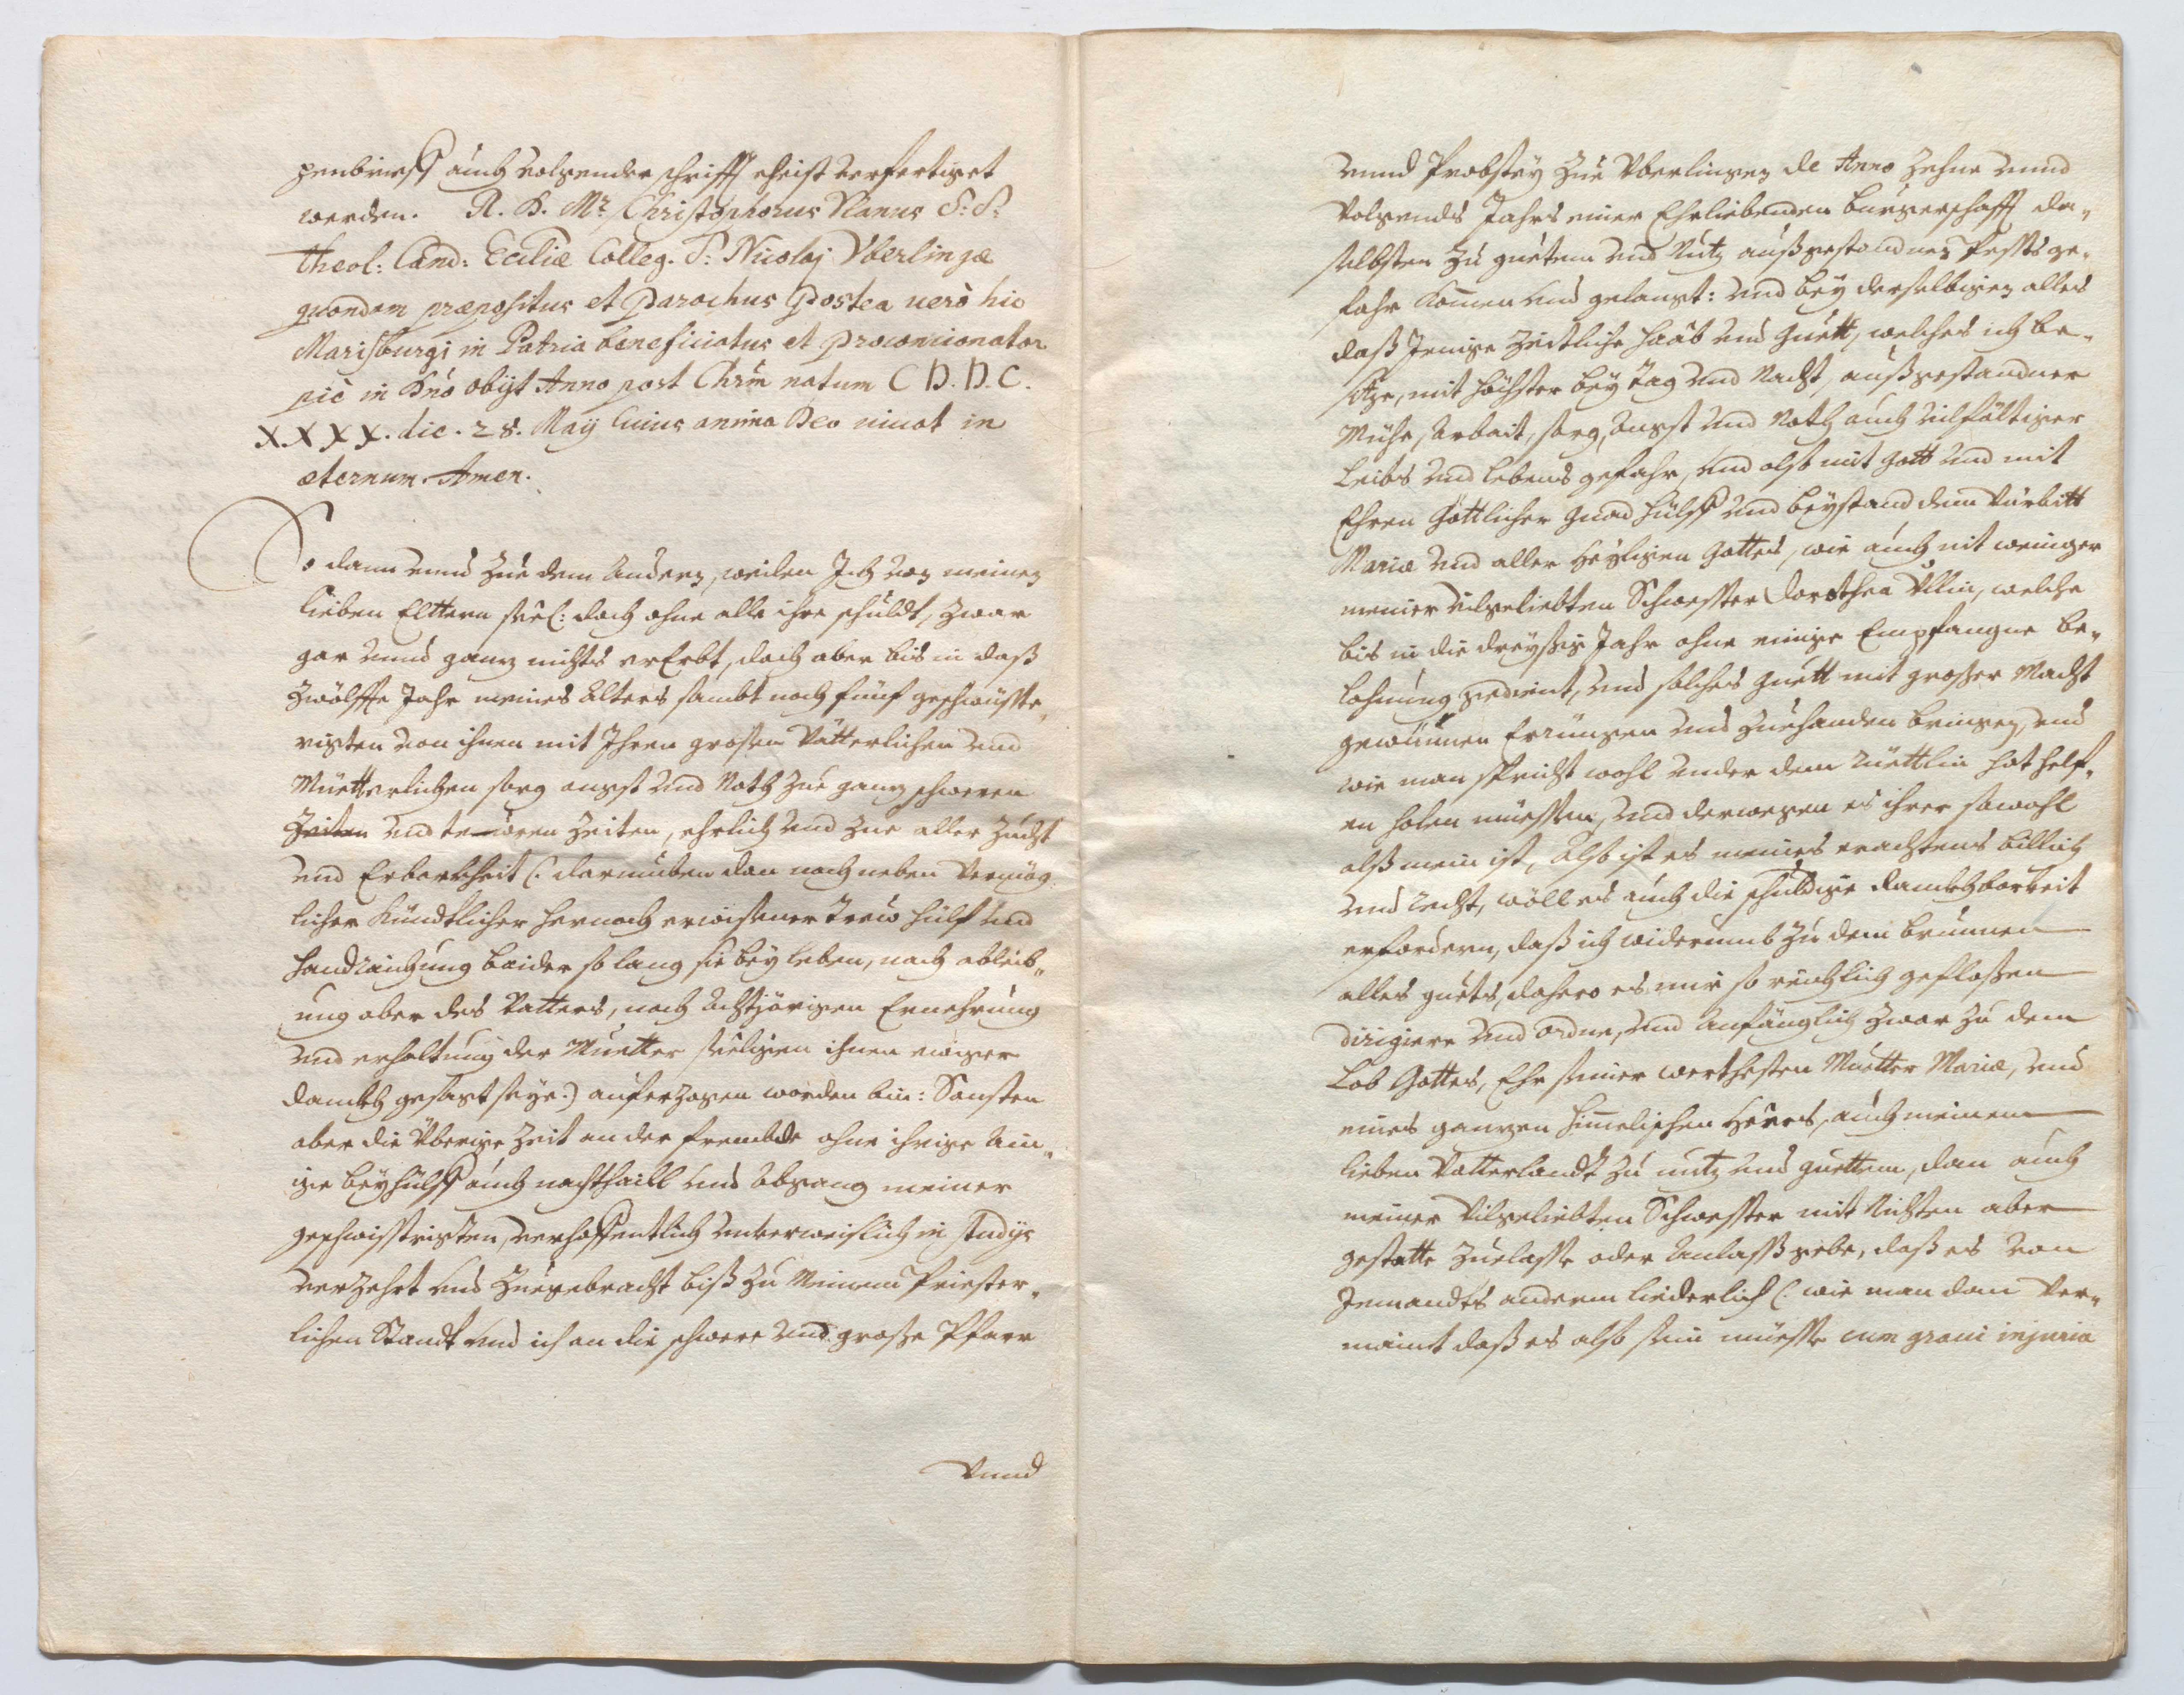 penbrieff auch volgender schrifft eheist verfertiget
werden. R. D. Mr. Christophorus Vlanus S: S:
theol: Cand: Eccliæ Colleg. S: Nicolaj Vberlingæ
quondam præpositus et Parochus Postea verò hic
Marisburgi in Patria beneficiatus et Proconcionator
piè in Dnò obijt Anno post Chrm natum C D. D. C.
X.X X X. die. 28. Maij Cuius anima Deo vivat in
æternum. Amen.
So dann vund zue dem Andern, weilen Ich von meinen
lieben Elttern seel: doch ohne alle ihre schuldt, zwar
gar vund ganz nichts ererbt, doch aber bis in daß
zwölffte Jahr meines Alters sambt noch fünf geschwüste,,
rigten von ihnen mit Ihren großen Vätterlichen vnd
Müetterlichen sorg angst vnd Noth zue ganz schweren
Zeiten vnd teüren Zeiten, ehrlich vnd zue aller zucht
vnd Erbarkheit (: darumben dan noch neben vermög,,
licher Kündtlicher hernach erwißener Trew hülf vnd
handraichung baider so lang sie bey leben, nach ableib,,
ung aber des Vatters, noch Achtjärigen Ernehrung
vnd erhaltung der Muetter seeligen ihnen ewiger
dankh gesagt seye:) auferzogen worden bin: Sonsten
aber die Überige Zeit an der frembde ohne ihrige Ain,,
ige beyhülff auch nachthaill vnd Abgang meiner
geschwistrigten, verhoffentlich vnverweislich in studijs
verzehrt vnd zuegebracht biß zu Meinem Priester,,
lichen Standt vnd ich an die schwere vnd große Pfarr
Vnnd
vnnd Probstey zue Vberlingen de Anno Zehne vnnd
Volgends Jahrs einer Ehrliebenden burgerschafft da,,
selbsten zu guetem vnd Nutz außgestandner Pestsge,,
fahr komen vnd gelangt: vnd bey derselbigen alles
daß Jenige Zeitliche haab vnd guett, welches ich be,,
size, mit höchster bey tag vnd Nacht, außgestandner
Mühe, arbait, sorg, Angst vnd Noth auch vilfältiger
Leibs vnd lebens gefahr, vnd alß mit Gott vnd mit
Ehren Göttlicher Gnad hülff vnd beystand dem Vürbitt
Mariæ vnd aller Heyligen Gottes, wie auch nit weniger
meiner vilgeliebten Schwester Dorothea Vllin, welche
bis in die dreyßig Jahr ohne einige Empfangne be,,
lohnung gedient, vnd solches guett mit großer Macht
gewünnen Errungen vnd zuehanden bringen, vnd
wie man spricht wohl vnder dem Rüettlin hat helf,,
en holen müessen, vnd derwegen es ihrer sowohl
alß mein ist, Alß ist es meines erachtens billich
vnd recht, wöll es auch die schuldige dankhbarkeit
erfordern, daß ich widerumb zu dem brunnen
alles guets, dahero es mir so reichlich geflossen
dirigiere vnd ordne, vnd Anfänglich zwar zu dem
Lob Gottes, Ehr seiner werthesten Muetter Mariæ, vnd
eines ganzen himelischen Heers, auch meinem
lieben Vatterlandt zu nutz vnd guettem, dan auch
meiner vilgeliebten Schwester mit Nichten aber
gestatte zuelasse oder Anlaß gebe, daß es von
Jemandts anderm liederlich (: wie man dan ver,,
maint daß es alß sein müeste cum graui injuria